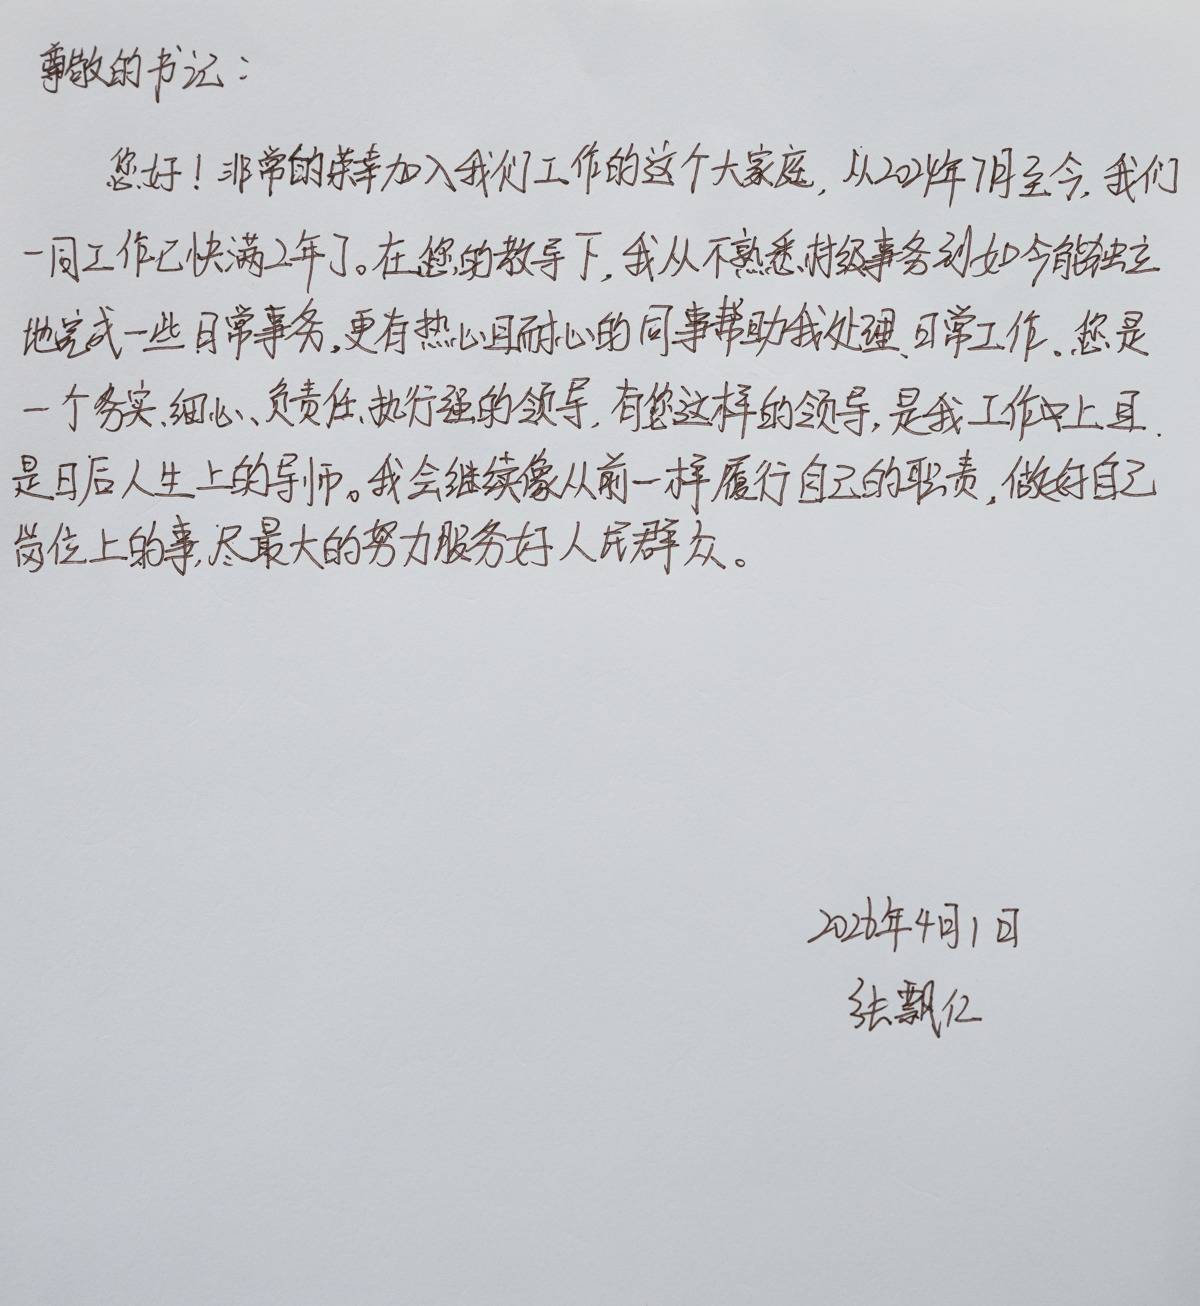 尊敬的书记：
您好！非常的荣幸加入我们工作的这个大家庭，从2024年7月至今，我们
一同工作已快满2年了。在您的教导下，我从不熟悉村级事务到如今能独立
地完成一些日常事务，更有热心且耐心的同事帮助我处理日常工作。您是
一个务实、细心、负责任、执行强的领导，有您这样的领导，是我工作中上且
是日后人生上的导师。我会继续像从前一样履行自己的职责，做好自己
岗位上的事，尽最大的努力服务好人民群众。
2026年4月1日
张飘亿